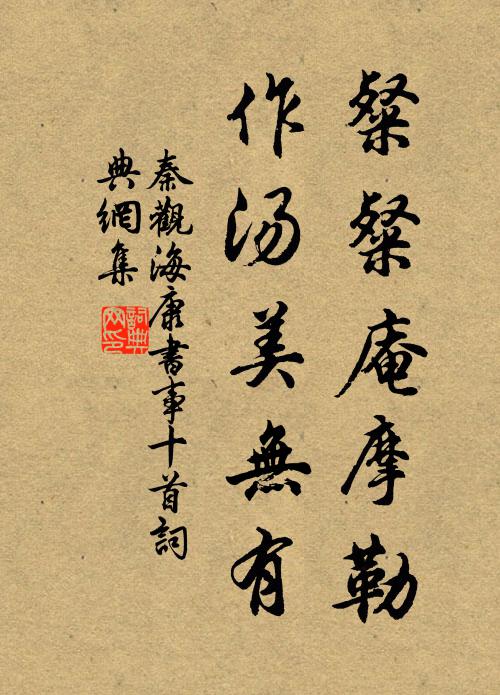 粲粲庵摩勒
作湯美無有
秦觀海康書事十首詞
典網集
詞典
网印